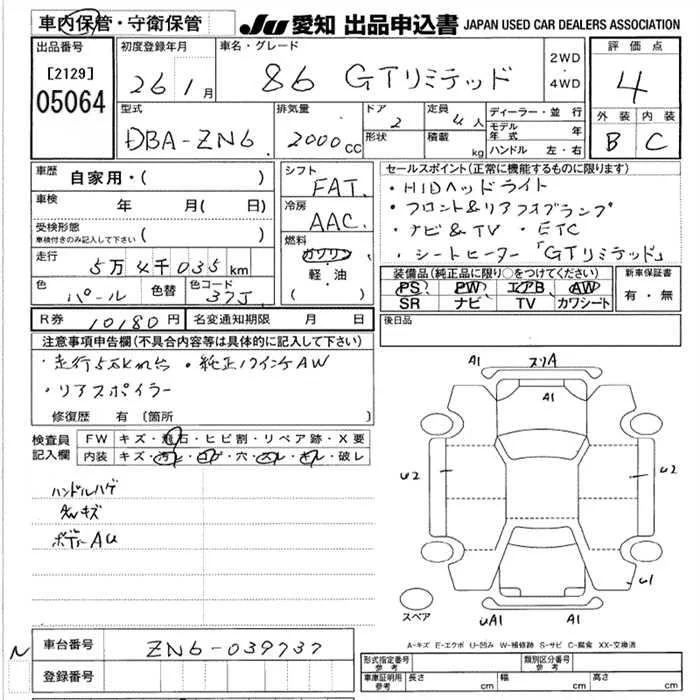 車内保管・守衛保管 JU 愛知 出品申込書 JAPAN USED CAR DEALERS ASSOCIATION
出品番号 [2129] 05064
初度登録年月 26 1月
車名・グレード 86 GTリミテッド
2WD・4WD
評価点 4
外装 B 内装 C
型式 DBA-ZN6
排気量 2000cc
ドア 2 形状
定員 4人 積載 kg
ディーラー・並行
モデル年式 年
ハンドル 左・右
車歴 自家用・( )
車検 年 月( 日)
受検形態
車検付きのみ記入して下さい ( )
走行 5万4千035km
色 パール 色替 色コード 37J
シフト FAT
冷房 AAC
燃料 ガソリン
軽・油
( )
セールスポイント(正常に機能するものに限ります)
・HIDヘッドライト
・フロント&リアフォグランプ
・ナビ&TV ・ETC
・シートヒーター「GTリミテッド」
装備品(純正品に限り○をつけてください)
PS PW エアB AW
SR ナビ TV カワシート
新車保証書
有・無
R券 10180円 名変通知期限 月 日
後日品
注意事項申告欄(不具合内容等は具体的に記入して下さい)
・走行5万km台 ・純正17インチAW
・リアスポイラー
修復歴 有 〔箇所 〕
検査員記入欄
FW キズ・飛石・ヒビ割・リペア跡・X要
内装 キズ・汚レ・コゲ・穴・スレ・キレ・破レ
ハンドルハゲ
AWキズ
ボディAU
A1 スリA
A1
U2 U2
U1
UA1 A1
スペア
A-キズ E-エクボ U-凹み W-補修跡 S-サビ C-腐食 XX-交換済
N 車台番号 ZN6-039737
登録番号
形式指定番号 参考 類別区分番号 参考
車庫証明用 参考 長さ cm 幅 cm 高さ cm